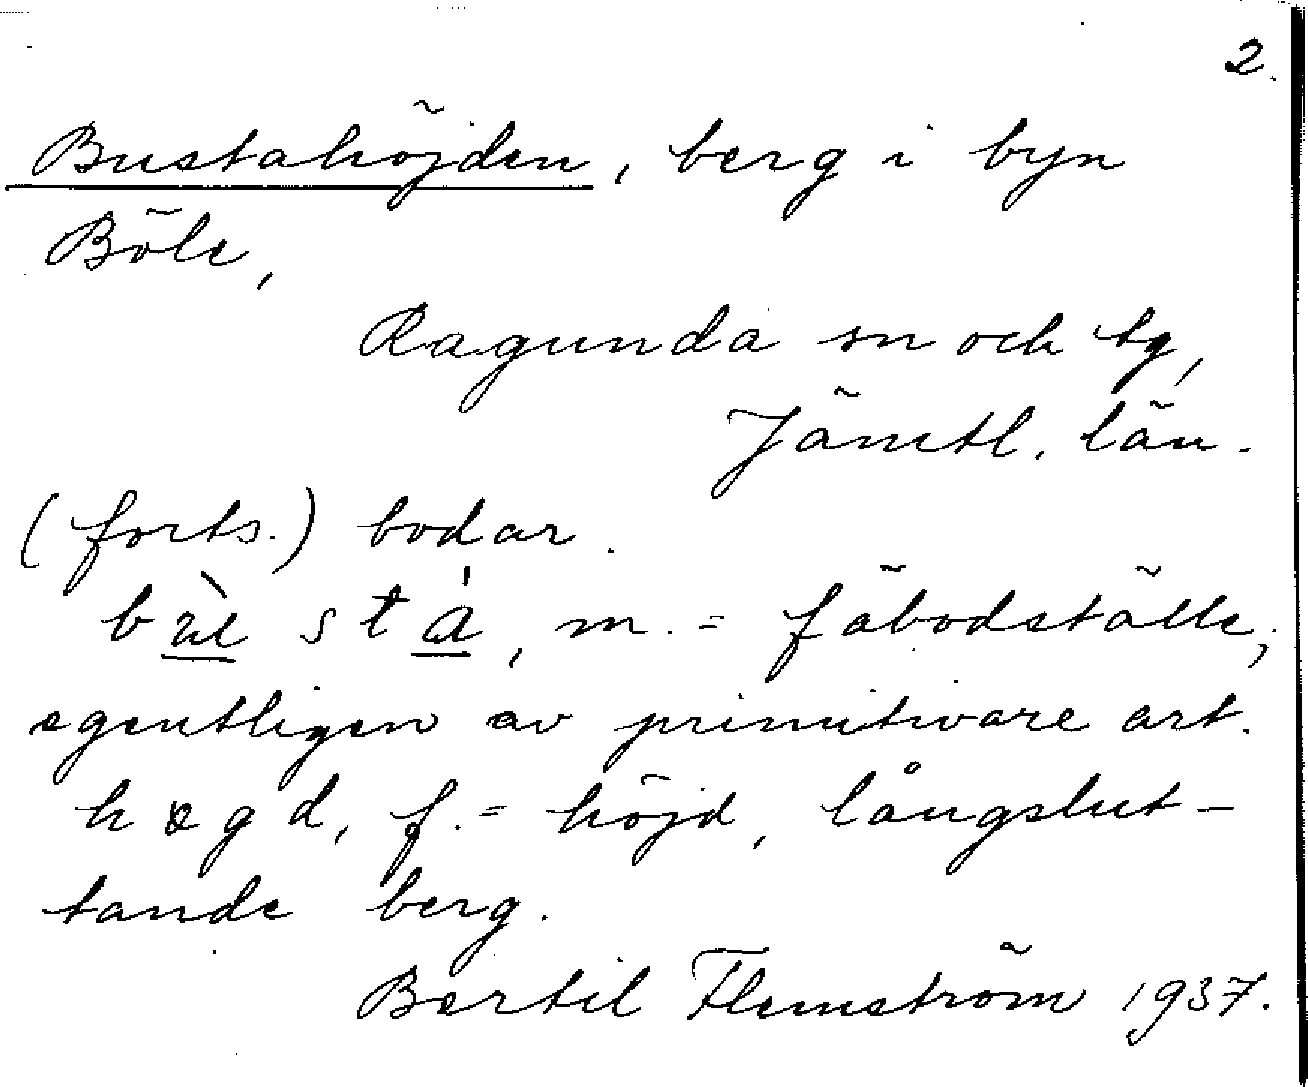 2.
Bustahöjden, berg i byn
Böle,
Ragunda sn och tg,
Jämtl. län.
(forts.) bodar.
m. = fäbodställe,
egentligen av primitivare art.
f. = höjd, långslut-
tande berg.
Bertil Flemström 1937.